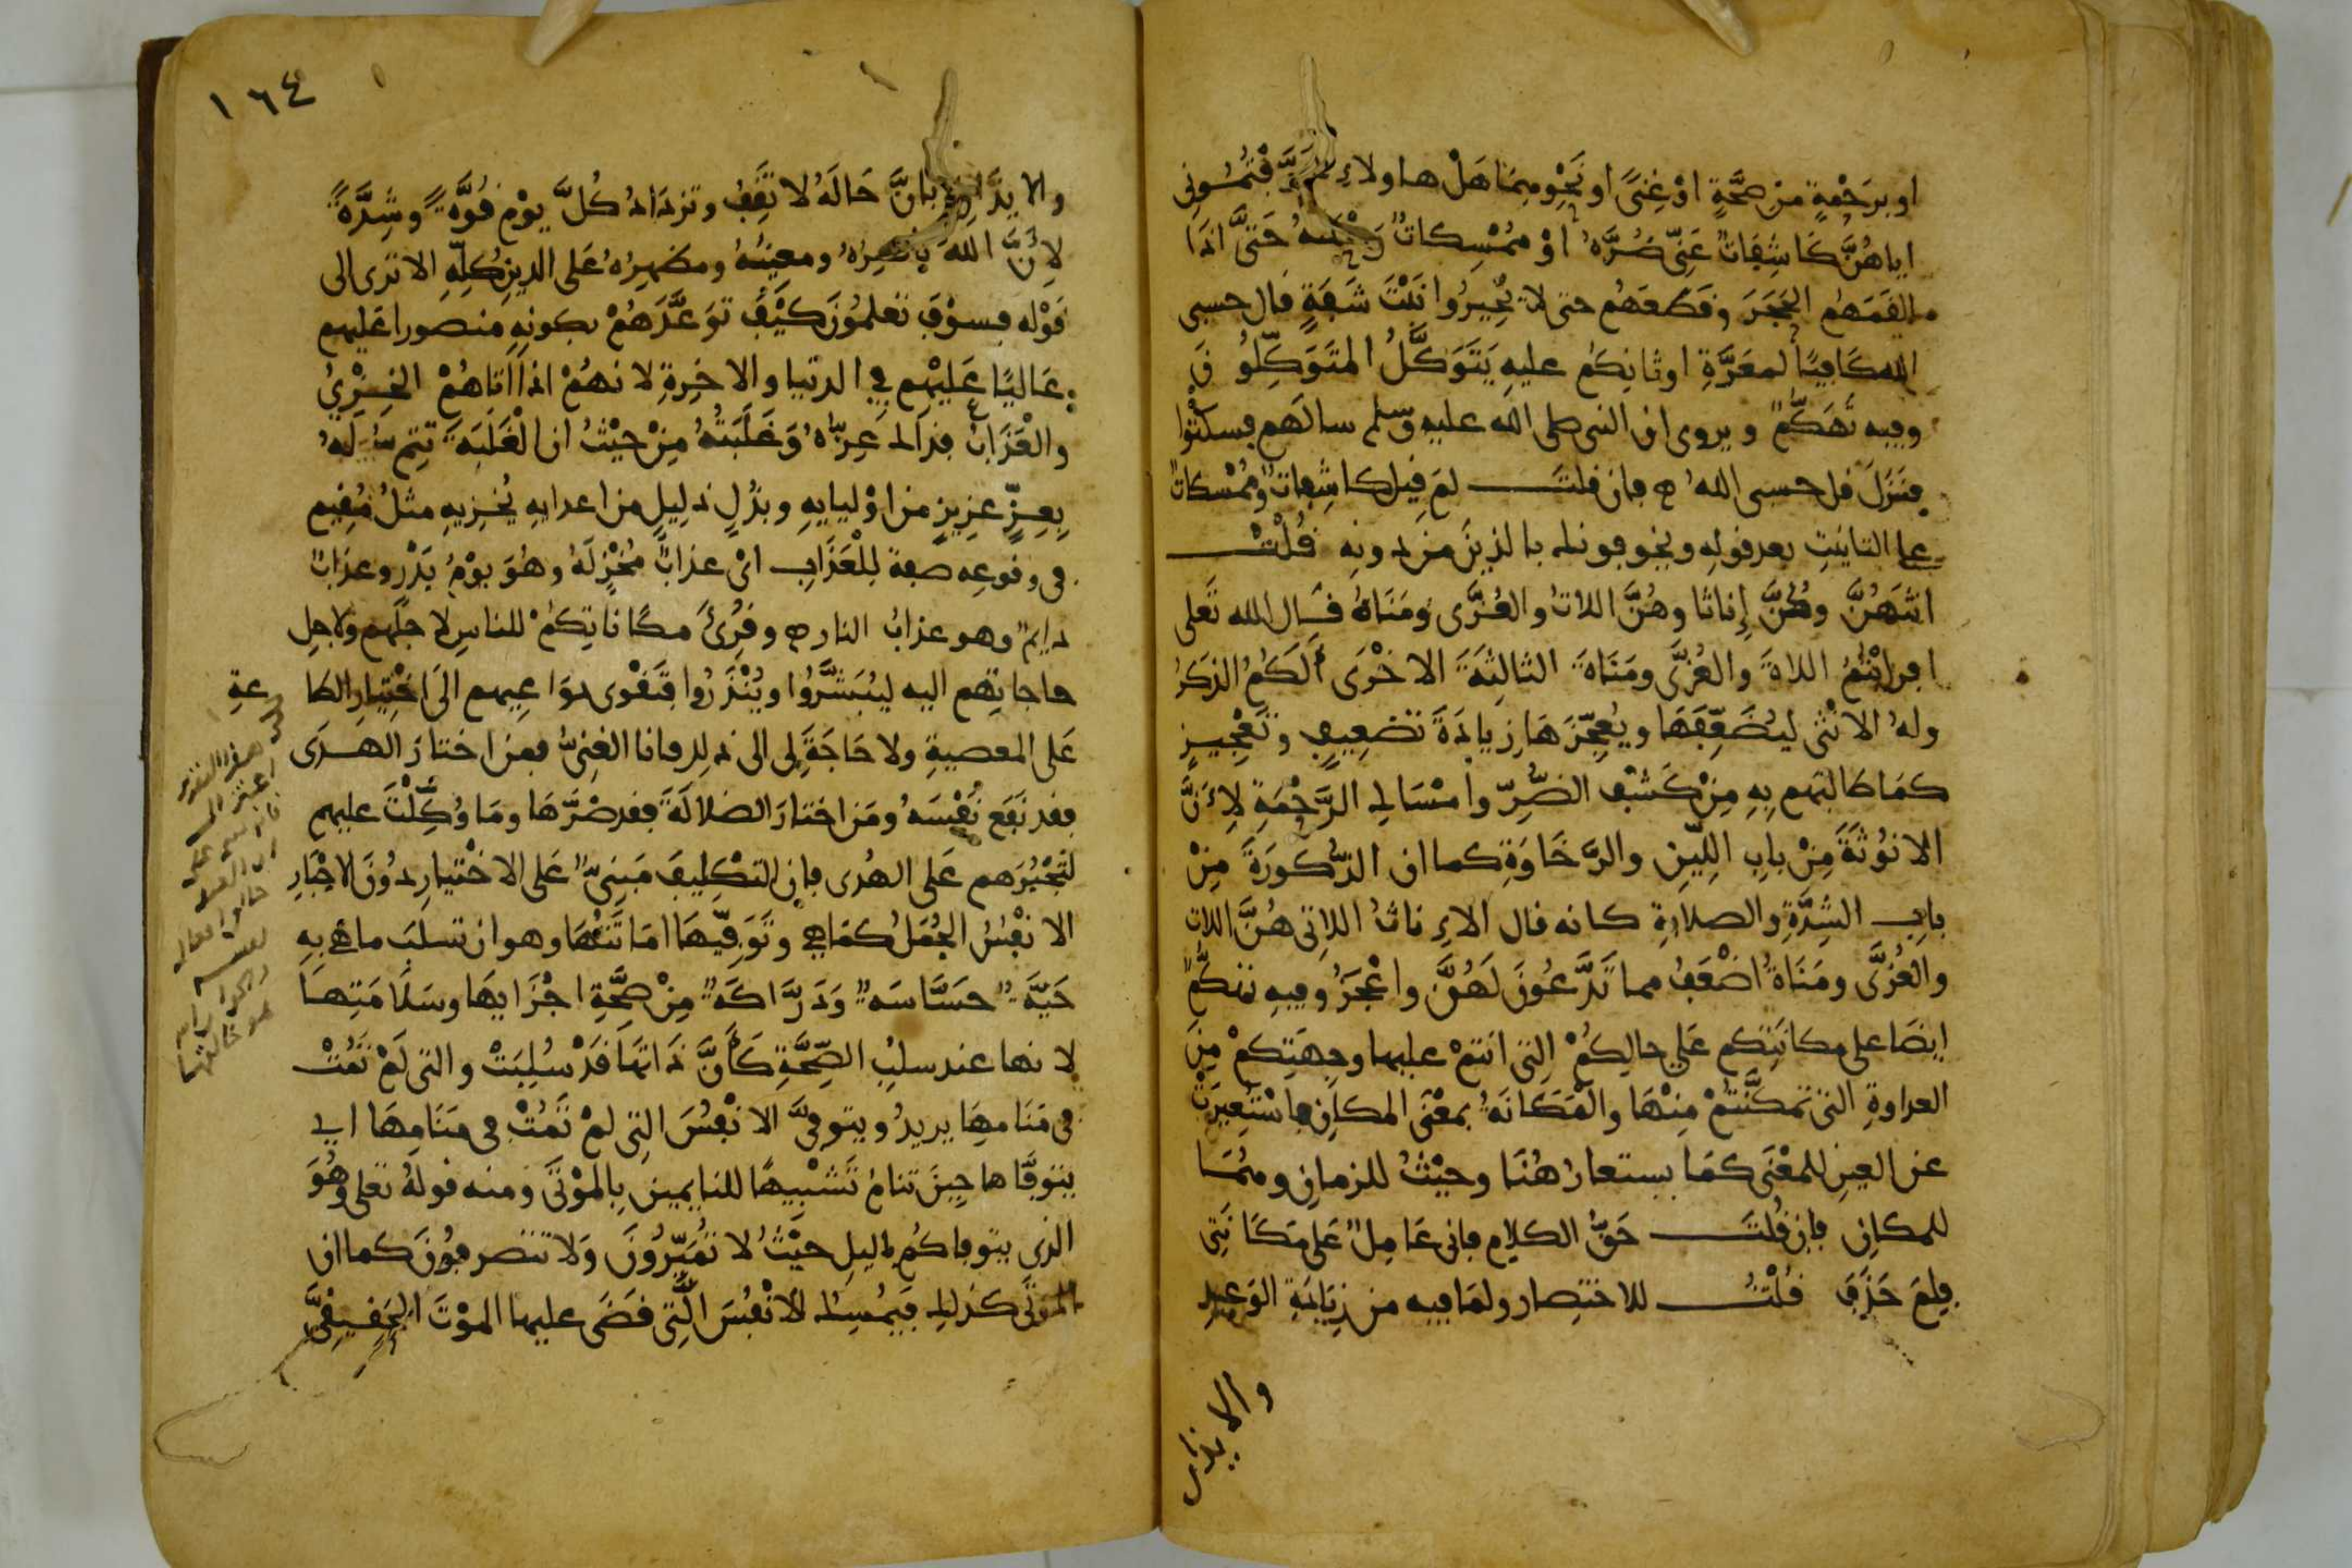 او برحمة من صحة او غنى او نحوهما هل هاولاء فتموني
اياهن كاشفات عني ضره او ممسكات رحمته حتى اذا
القمهم الحجر وقطعهم حتى لا يحيروا ببنت شفة قال حسبي
الله كافيا لمعرة اوثانكم عليه يتوكل المتوكلون
وفيه تهكم ويروى ان النبي صلى الله عليه وسلم سالهم فسكتوا
فنزل قل حسبي الله فان قلت لم قيل كاشفات وممسكات
على التانيث بعد قوله ويخوفونك بالذين من دونه قلت
انثهن وكن إناثا وهن اللات والعزى ومناة قال الله تعلى
افرايتم اللاة والعزى ومناة الثالثة الاخرى ألكم الذكر
وله الانثى ليضعفها ويعجزها زيادة تضعيف وتعجيز
كما طالبهم به من كشف الضر وامساك الرحمة لأن
الانوثة من باب اللين والرخاوة كما ان الذكورة من
باب الشدة والصلابة كانه قال الإناث اللاتي هن اللات
والعزى ومناة أضعف مما تدعون لهن واعجز وفيه تهكم
ايضا على مكانتكم على حالكم التي انتم عليها وجهتكم من
العداوة التي تمكنتم منها والمكانة بمعنى المكان فاستعيرت
عن العين للمعنى كما يستعار هنا وحيث للزمان وهما
للمكان فإن قلت حق الكلام فاني عامل على مكانتي
فلم حذف قلت للاختصار ولما فيه من زيادة الوعيد
والايذان
١٦٤
والايذان بان حاله لا تقف وتزداد كل يوم قوة وشدة
لأن الله ناصره ومعينه ومظهره على الدين كله الا ترى الى
قوله فسوف تعلمون كيف توعدهم بكونه منصورا عليهم
غالبا عليهم في الدنيا والاخرة لانهم اذا اتاهم الخزي
والعذاب فذاك عزه وغلبته من حيث ان الغلبة تتم له
بعز عزيز من اوليايه وبذل ذليل من اعدايه يخزيه مثل مقيم
في وقوعه صفة للعذاب اي عذاب مخز له وهو يوم بدر وعذاب
دايم وهو عذاب النار وقرئ مكاناتكم للناس لاجلهم ولاجل
حاجاتهم اليه ليبشروا وينذروا فتقوى دواعيهم الى اختيار الطاعة
على المعصية ولا حاجة لي الى ذلك فانا الغني فمن اختار الهدى
فقد نفع نفسه ومن اختار الضلالة فقد ضرها وما وكلت عليهم
لتجبرهم على الهدى فإن التكليف مبني على الاختيار دون الاجبار
الانفس الجمل كما هي وتوفيها اماتتها وهو ان تسلب ما هي به
حية حساسة دراكة من صحة اجزايها وسلامتها
لانها عند سلب الصحة كأن ذاتها قد سلبت والتي لم تمت
في منامها يريد ويتوفى الانفس التي لم تمت في منامها اي
يتوفاها حين تنام تشبيها للنايمين بالموتى ومنه قوله تعلى وهو
الذي يتوفاكم بالليل حيث لا تميزون ولا تتصرفون كما ان
الموتى كذلك فيمسك الانفس التي قضى عليها الموت الحقيقي